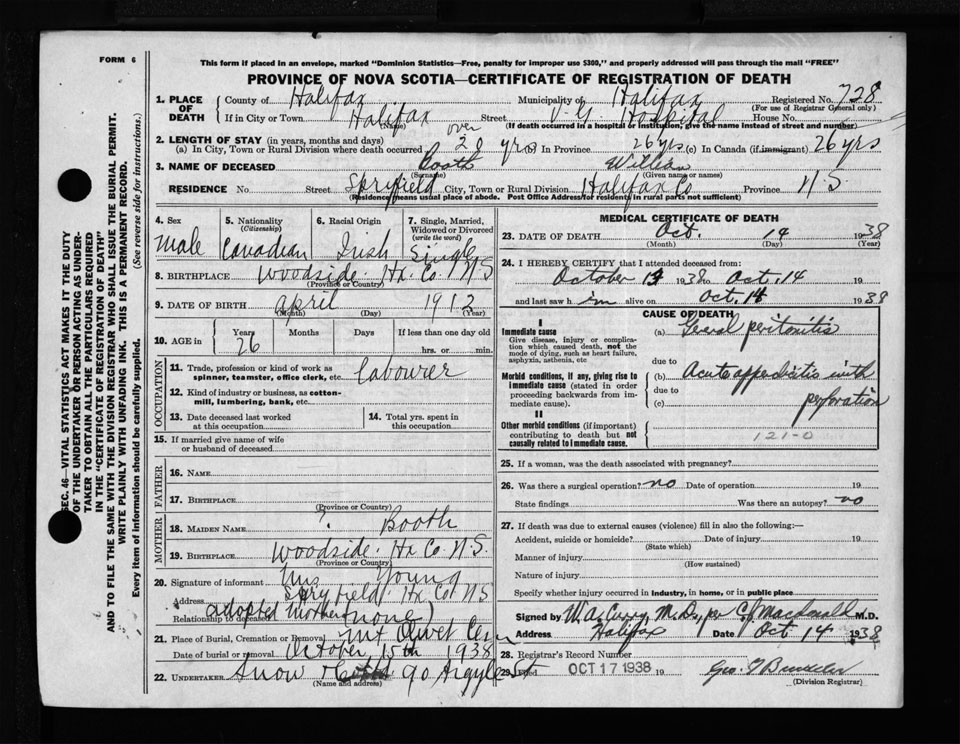 FORM 6
This form if placed in an envelope, marked "Dominion Statistics—Free, penalty for improper use $300," and properly addressed will pass through the mail "FREE"
PROVINCE OF NOVA SCOTIA—CERTIFICATE OF REGISTRATION OF DEATH
1. PLACE OF DEATH
County of Halifax Municipality of Halifax Registered No. 728
(For use of Registrar General only)
If in City or Town Halifax Street V. G. Hospital House No.
(Name) (If death occurred in a hospital or institution, give the name instead of street and number)
2. LENGTH OF STAY (in years, months and days) over
(a) In City, Town or Rural Division where death occurred 20 yrs (b) In Province 26 yrs (c) In Canada (if immigrant) 26 yrs
3. NAME OF DECEASED Booth William
(Surname) (Given name or names)
RESIDENCE No. Street Spryfield City, Town or Rural Division Halifax Co Province N S
(Residence means usual place of abode. Post Office Address for residents in rural parts not sufficient)
4. Sex Male
5. Nationality (Citizenship) Canadian
6. Racial Origin Irish
7. Single, Married, Widowed or Divorced (write the word) Single
8. BIRTHPLACE Woodside Hx. Co. N S
(Province or Country)
9. DATE OF BIRTH April 1912
(Month) (Day) (Year)
10. AGE in Years Months Days If less than one day old
26 hrs. or min.
OCCUPATION
11. Trade, profession or kind of work as spinner, teamster, office clerk, etc. Labourer
12. Kind of industry or business, as cotton-mill, lumbering, bank, etc.
13. Date deceased last worked at this occupation
14. Total yrs. spent in this occupation
15. If married give name of wife or husband of deceased
FATHER
16. NAME
17. BIRTHPLACE
(Province or Country)
MOTHER
18. MAIDEN NAME ? Booth
19. BIRTHPLACE Woodside. Hx Co. N.S.
(Province or Country)
20. Signature of informant Mrs Young
Address Spryfield. Hx Co N S
Relationship to deceased adopted Mother (none)
21. Place of Burial, Cremation or Removal Mt Olivet Cem
Date of burial or removal October 15th 1938
22. UNDERTAKER Snow 90 Argyle St
(Name and address)
MEDICAL CERTIFICATE OF DEATH
23. DATE OF DEATH Oct. 14 1938
(Month) (Day) (Year)
24. I HEREBY CERTIFY that I attended deceased from:
October 13 1938 to Oct. 14
and last saw h im alive on Oct. 14 1938
CAUSE OF DEATH
I
Immediate cause
Give disease, injury or complication which caused death, not the mode of dying, such as heart failure, asphyxia, asthenia, etc
(a) General peritonitis
due to
Morbid conditions, if any, giving rise to immediate cause (stated in order proceeding backwards from immediate cause).
(b) Acute appendicitis with
due to
(c) perforation
II
Other morbid conditions (if important) contributing to death but not causally related to immediate cause.
121-0
25. If a woman, was the death associated with pregnancy?
26. Was there a surgical operation? no Date of operation 19
State findings Was there an autopsy? no
27. If death was due to external causes (violence) fill in also the following:—
Accident, suicide or homicide? Date of injury 19
(State which)
Manner of injury
(How sustained)
Nature of injury
Specify whether injury occurred in industry, in home, or in public place
Signed by W. A. Curry, M.D., per C. J. Macdonald M.D.
Address Halifax Date Oct 14 1938
28. Registrar's Record Number
29. Filed OCT 17 1938 19
(Division Registrar)
SEC. 46—VITAL STATISTICS ACT MAKES IT THE DUTY
OF THE UNDERTAKER OR PERSON ACTING AS UNDER-
TAKER TO OBTAIN ALL THE PARTICULARS REQUIRED
IN THE "CERTIFICATE OF REGISTRATION OF DEATH"
AND TO FILE THE SAME WITH THE DIVISION REGISTRAR WHO SHALL ISSUE THE BURIAL PERMIT.
WRITE PLAINLY WITH UNFADING INK. THIS IS A PERMANENT RECORD.
Every item of information should be carefully supplied. (See reverse side for instructions.)